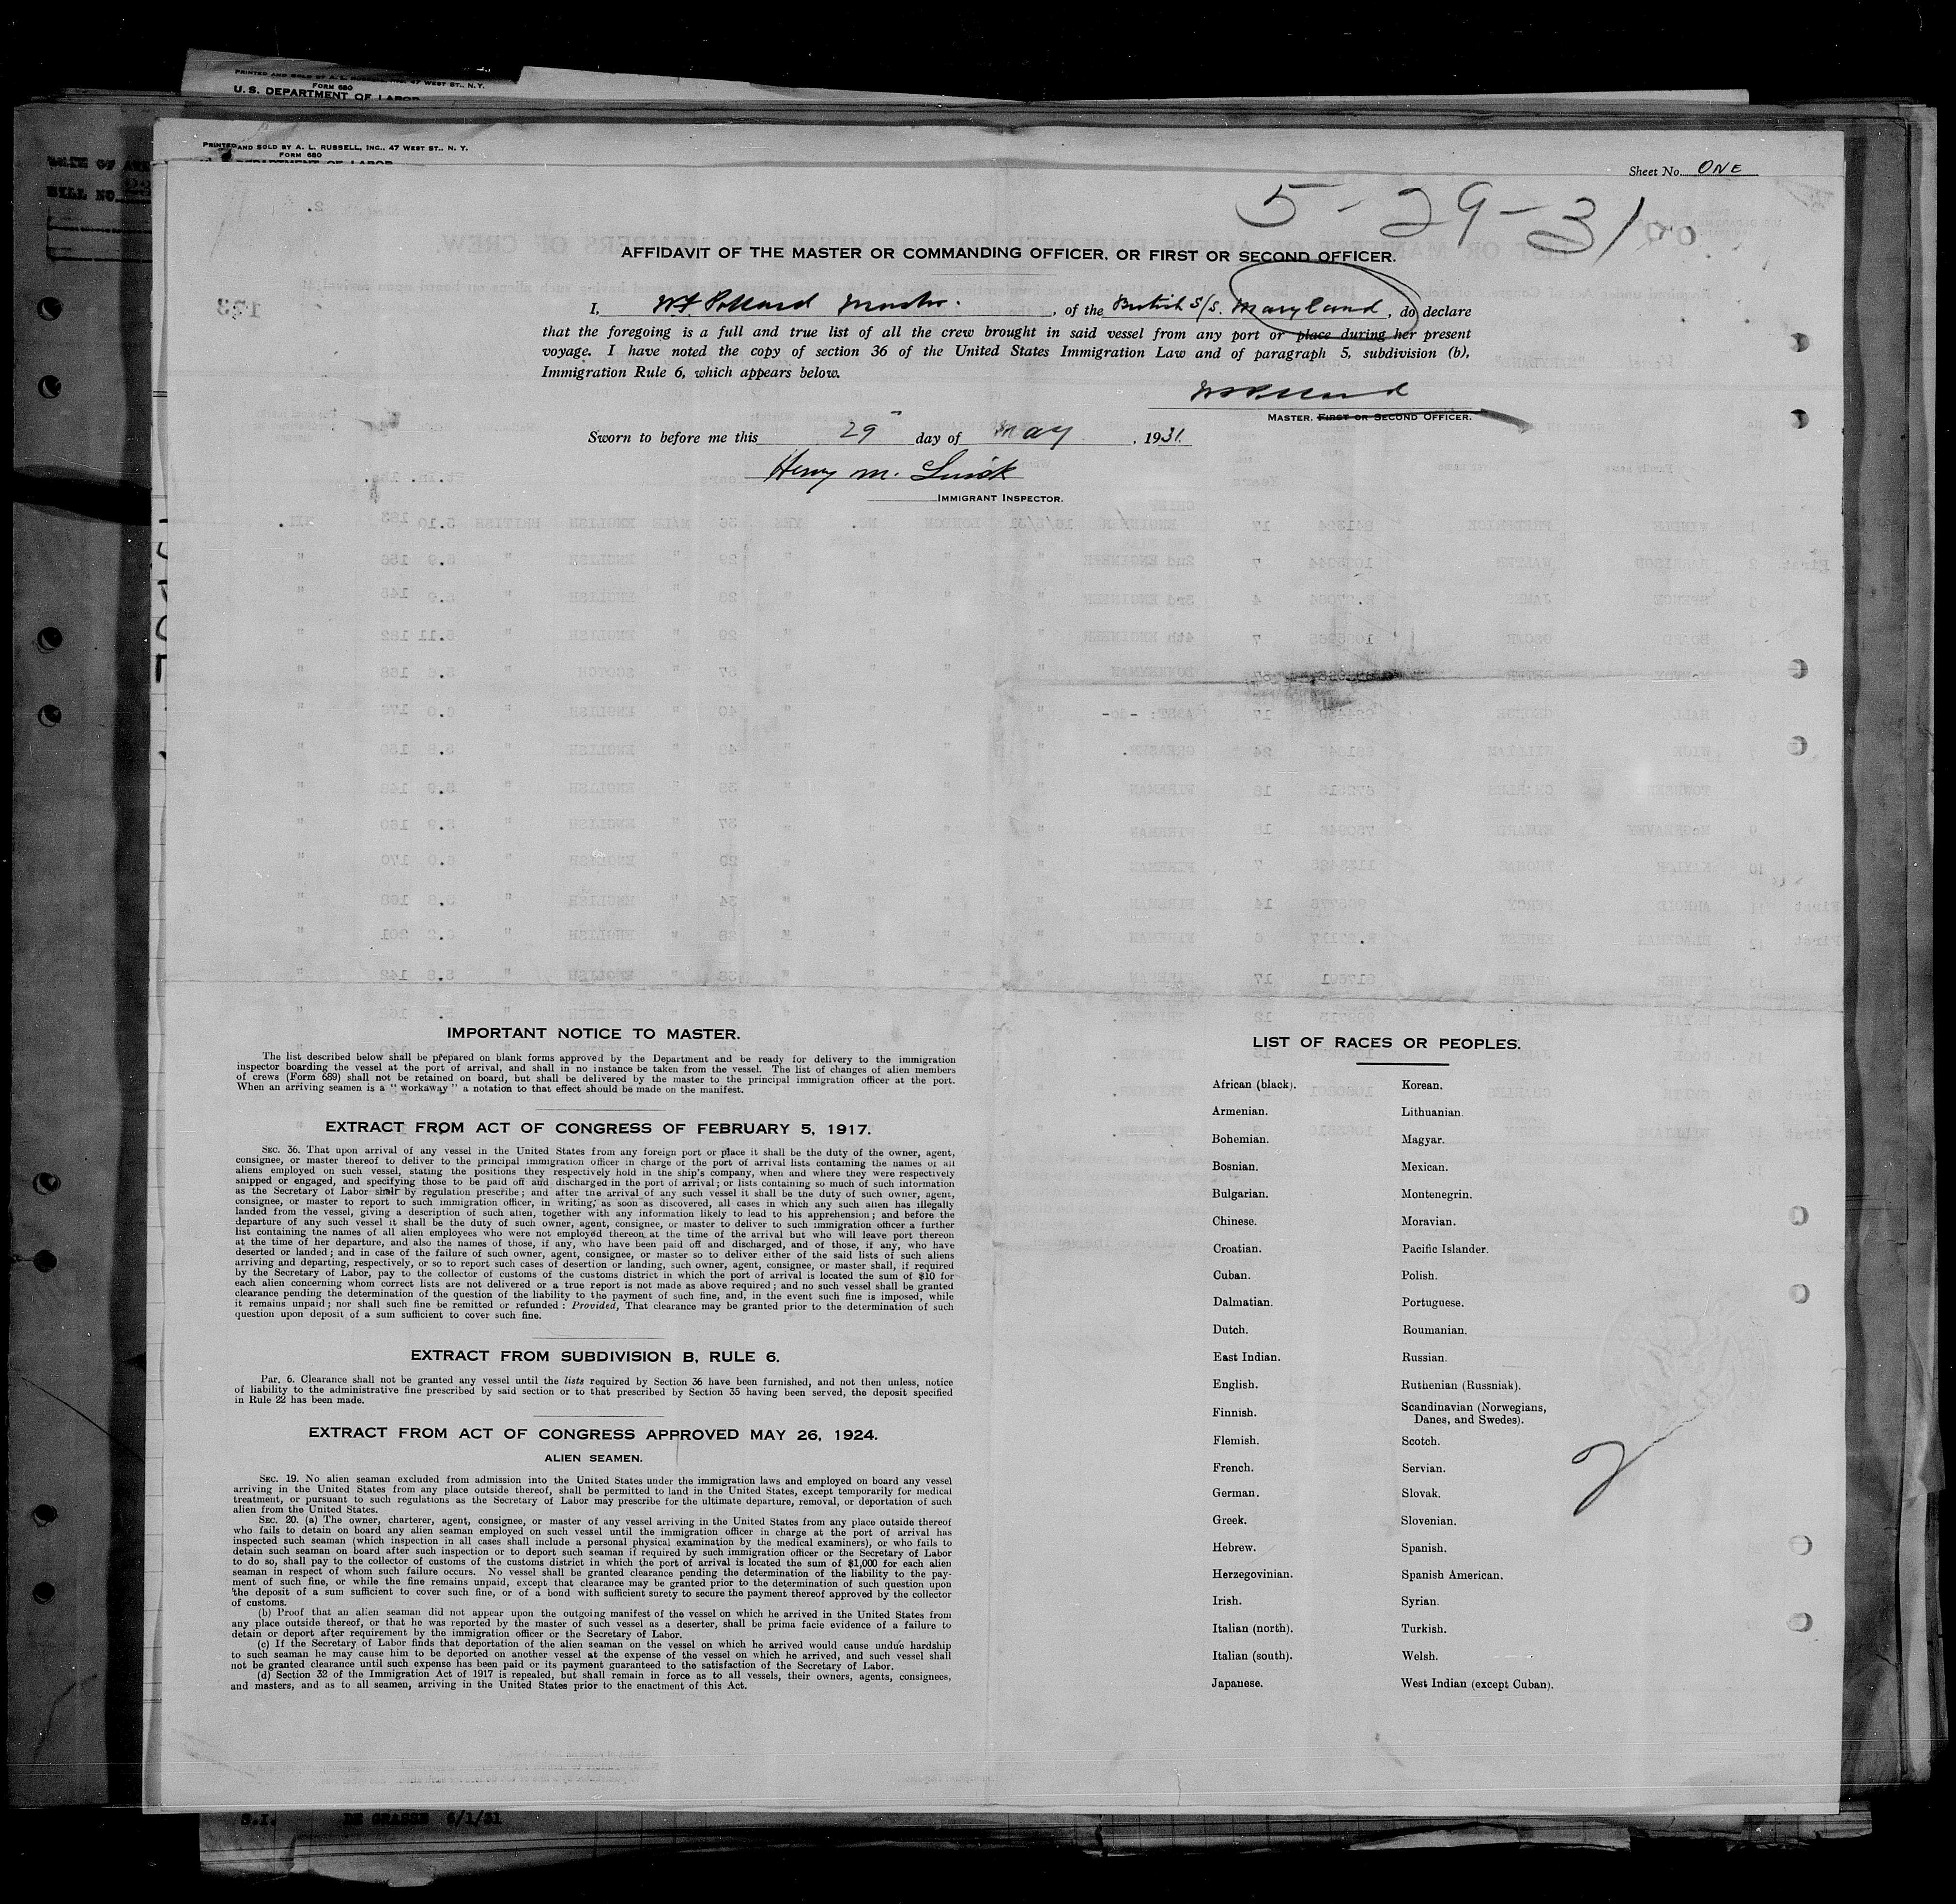 PRINTED AND SOLD BY A. L. RUSSELL, INC., 47 WEST ST., N. Y.
FORM 680
U. S. DEPARTMENT OF LABOR
PRINTED AND SOLD BY A. L. RUSSELL, INC., 47 WEST ST., N. Y.
FORM 680
Sheet No. ONE
5-29-31
AFFIDAVIT OF THE MASTER OR COMMANDING OFFICER, OR FIRST OR SECOND OFFICER.
I, Master. , of the British S/S. Maryland , do declare
that the foregoing is a full and true list of all the crew brought in said vessel from any port or place during her present
voyage. I have noted the copy of section 36 of the United States Immigration Law and of paragraph 5, subdivision (b),
Immigration Rule 6, which appears below.
MASTER, FIRST OR SECOND OFFICER.
Sworn to before me this 29 day of May , 1931.
Henry M.
IMMIGRANT INSPECTOR.
IMPORTANT NOTICE TO MASTER.
The list described below shall be prepared on blank forms approved by the Department and be ready for delivery to the immigration
inspector boarding the vessel at the port of arrival, and shall in no instance be taken from the vessel. The list of changes of alien members
of crews (Form 689) shall not be retained on board, but shall be delivered by the master to the principal immigration officer at the port.
When an arriving seamen is a "workaway" a notation to that effect should be made on the manifest.
EXTRACT FROM ACT OF CONGRESS OF FEBRUARY 5, 1917.
SEC. 36. That upon arrival of any vessel in the United States from any foreign port or place it shall be the duty of the owner, agent,
consignee, or master thereof to deliver to the principal immigration officer in charge of the port of arrival lists containing the names of all
aliens employed on such vessel, stating the positions they respectively hold in the ship's company, when and where they were respectively
shipped or engaged, and specifying those to be paid off and discharged in the port of arrival; or lists containing so much of such information
as the Secretary of Labor shall by regulation prescribe; and after the arrival of any such vessel it shall be the duty of such owner, agent,
consignee, or master to report to such immigration officer, in writing, as soon as discovered, all cases in which any such alien has illegally
landed from the vessel, giving a description of such alien, together with any information likely to lead to his apprehension; and before the
departure of any such vessel it shall be the duty of such owner, agent, consignee, or master to deliver to such immigration officer a further
list containing the names of all alien employees who were not employed thereon at the time of the arrival but who will leave port thereon
at the time of her departure, and also the names of those, if any, who have been paid off and discharged, and of those, if any, who have
deserted or landed; and in case of the failure of such owner, agent, consignee, or master so to deliver either of the said lists of such aliens
arriving and departing, respectively, or so to report such cases of desertion or landing, such owner, agent, consignee, or master shall, if required
by the Secretary of Labor, pay to the collector of customs of the customs district in which the port of arrival is located the sum of $10 for
each alien concerning whom correct lists are not delivered or a true report is not made as above required; and no such vessel shall be granted
clearance pending the determination of the question of the liability to the payment of such fine, and, in the event such fine is imposed, while
it remains unpaid; nor shall such fine be remitted or refunded: Provided, That clearance may be granted prior to the determination of such
question upon deposit of a sum sufficient to cover such fine.
EXTRACT FROM SUBDIVISION B, RULE 6.
Par. 6. Clearance shall not be granted any vessel until the lists required by Section 36 have been furnished, and not then unless, notice
of liability to the administrative fine prescribed by said section or to that prescribed by Section 35 having been served, the deposit specified
in Rule 22 has been made.
EXTRACT FROM ACT OF CONGRESS APPROVED MAY 26, 1924.
ALIEN SEAMEN.
SEC. 19. No alien seaman excluded from admission into the United States under the immigration laws and employed on board any vessel
arriving in the United States from any place outside thereof, shall be permitted to land in the United States, except temporarily for medical
treatment, or pursuant to such regulations as the Secretary of Labor may prescribe for the ultimate departure, removal, or deportation of such
alien from the United States.
SEC. 20. (a) The owner, charterer, agent, consignee, or master of any vessel arriving in the United States from any place outside thereof
who fails to detain on board any alien seaman employed on such vessel until the immigration officer in charge at the port of arrival has
inspected such seaman (which inspection in all cases shall include a personal physical examination by the medical examiners), or who fails to
detain such seaman on board after such inspection or to deport such seaman if required by such immigration officer or the Secretary of Labor
to do so, shall pay to the collector of customs of the customs district in which the port of arrival is located the sum of $1,000 for each alien
seaman in respect of whom such failure occurs. No vessel shall be granted clearance pending the determination of the liability to the pay-
ment of such fine, or while the fine remains unpaid, except that clearance may be granted prior to the determination of such question upon
the deposit of a sum sufficient to cover such fine, or of a bond with sufficient surety to secure the payment thereof approved by the collector
of customs.
(b) Proof that an alien seaman did not appear upon the outgoing manifest of the vessel on which he arrived in the United States from
any place outside thereof, or that he was reported by the master of such vessel as a deserter, shall be prima facie evidence of a failure to
detain or deport after requirement by the immigration officer or the Secretary of Labor.
(c) If the Secretary of Labor finds that deportation of the alien seaman on the vessel on which he arrived would cause undue hardship
to such seaman he may cause him to be deported on another vessel at the expense of the vessel on which he arrived, and such vessel shall
not be granted clearance until such expense has been paid or its payment guaranteed to the satisfaction of the Secretary of Labor.
(d) Section 32 of the Immigration Act of 1917 is repealed, but shall remain in force as to all vessels, their owners, agents, consignees,
and masters, and as to all seamen, arriving in the United States prior to the enactment of this Act.
LIST OF RACES OR PEOPLES.
African (black). Korean.
Armenian. Lithuanian.
Bohemian. Magyar.
Bosnian. Mexican.
Bulgarian. Montenegrin.
Chinese. Moravian.
Croatian. Pacific Islander.
Cuban. Polish.
Dalmatian. Portuguese.
Dutch. Roumanian.
East Indian. Russian.
English. Ruthenian (Russniak).
Finnish. Scandinavian (Norwegians,
Danes, and Swedes).
Flemish. Scotch.
French. Servian.
German. Slovak.
Greek. Slovenian.
Hebrew. Spanish.
Herzegovinian. Spanish American.
Irish. Syrian.
Italian (north). Turkish.
Italian (south). Welsh.
Japanese. West Indian (except Cuban).
2
S.I. DE GRASSE 6/1/31